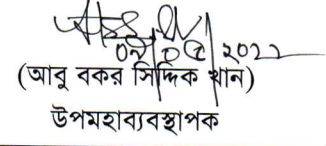 ০৮/০৫/২০২২
(আবু বকর সিদ্দিক খান)
উপমহাব্যবস্থাপক